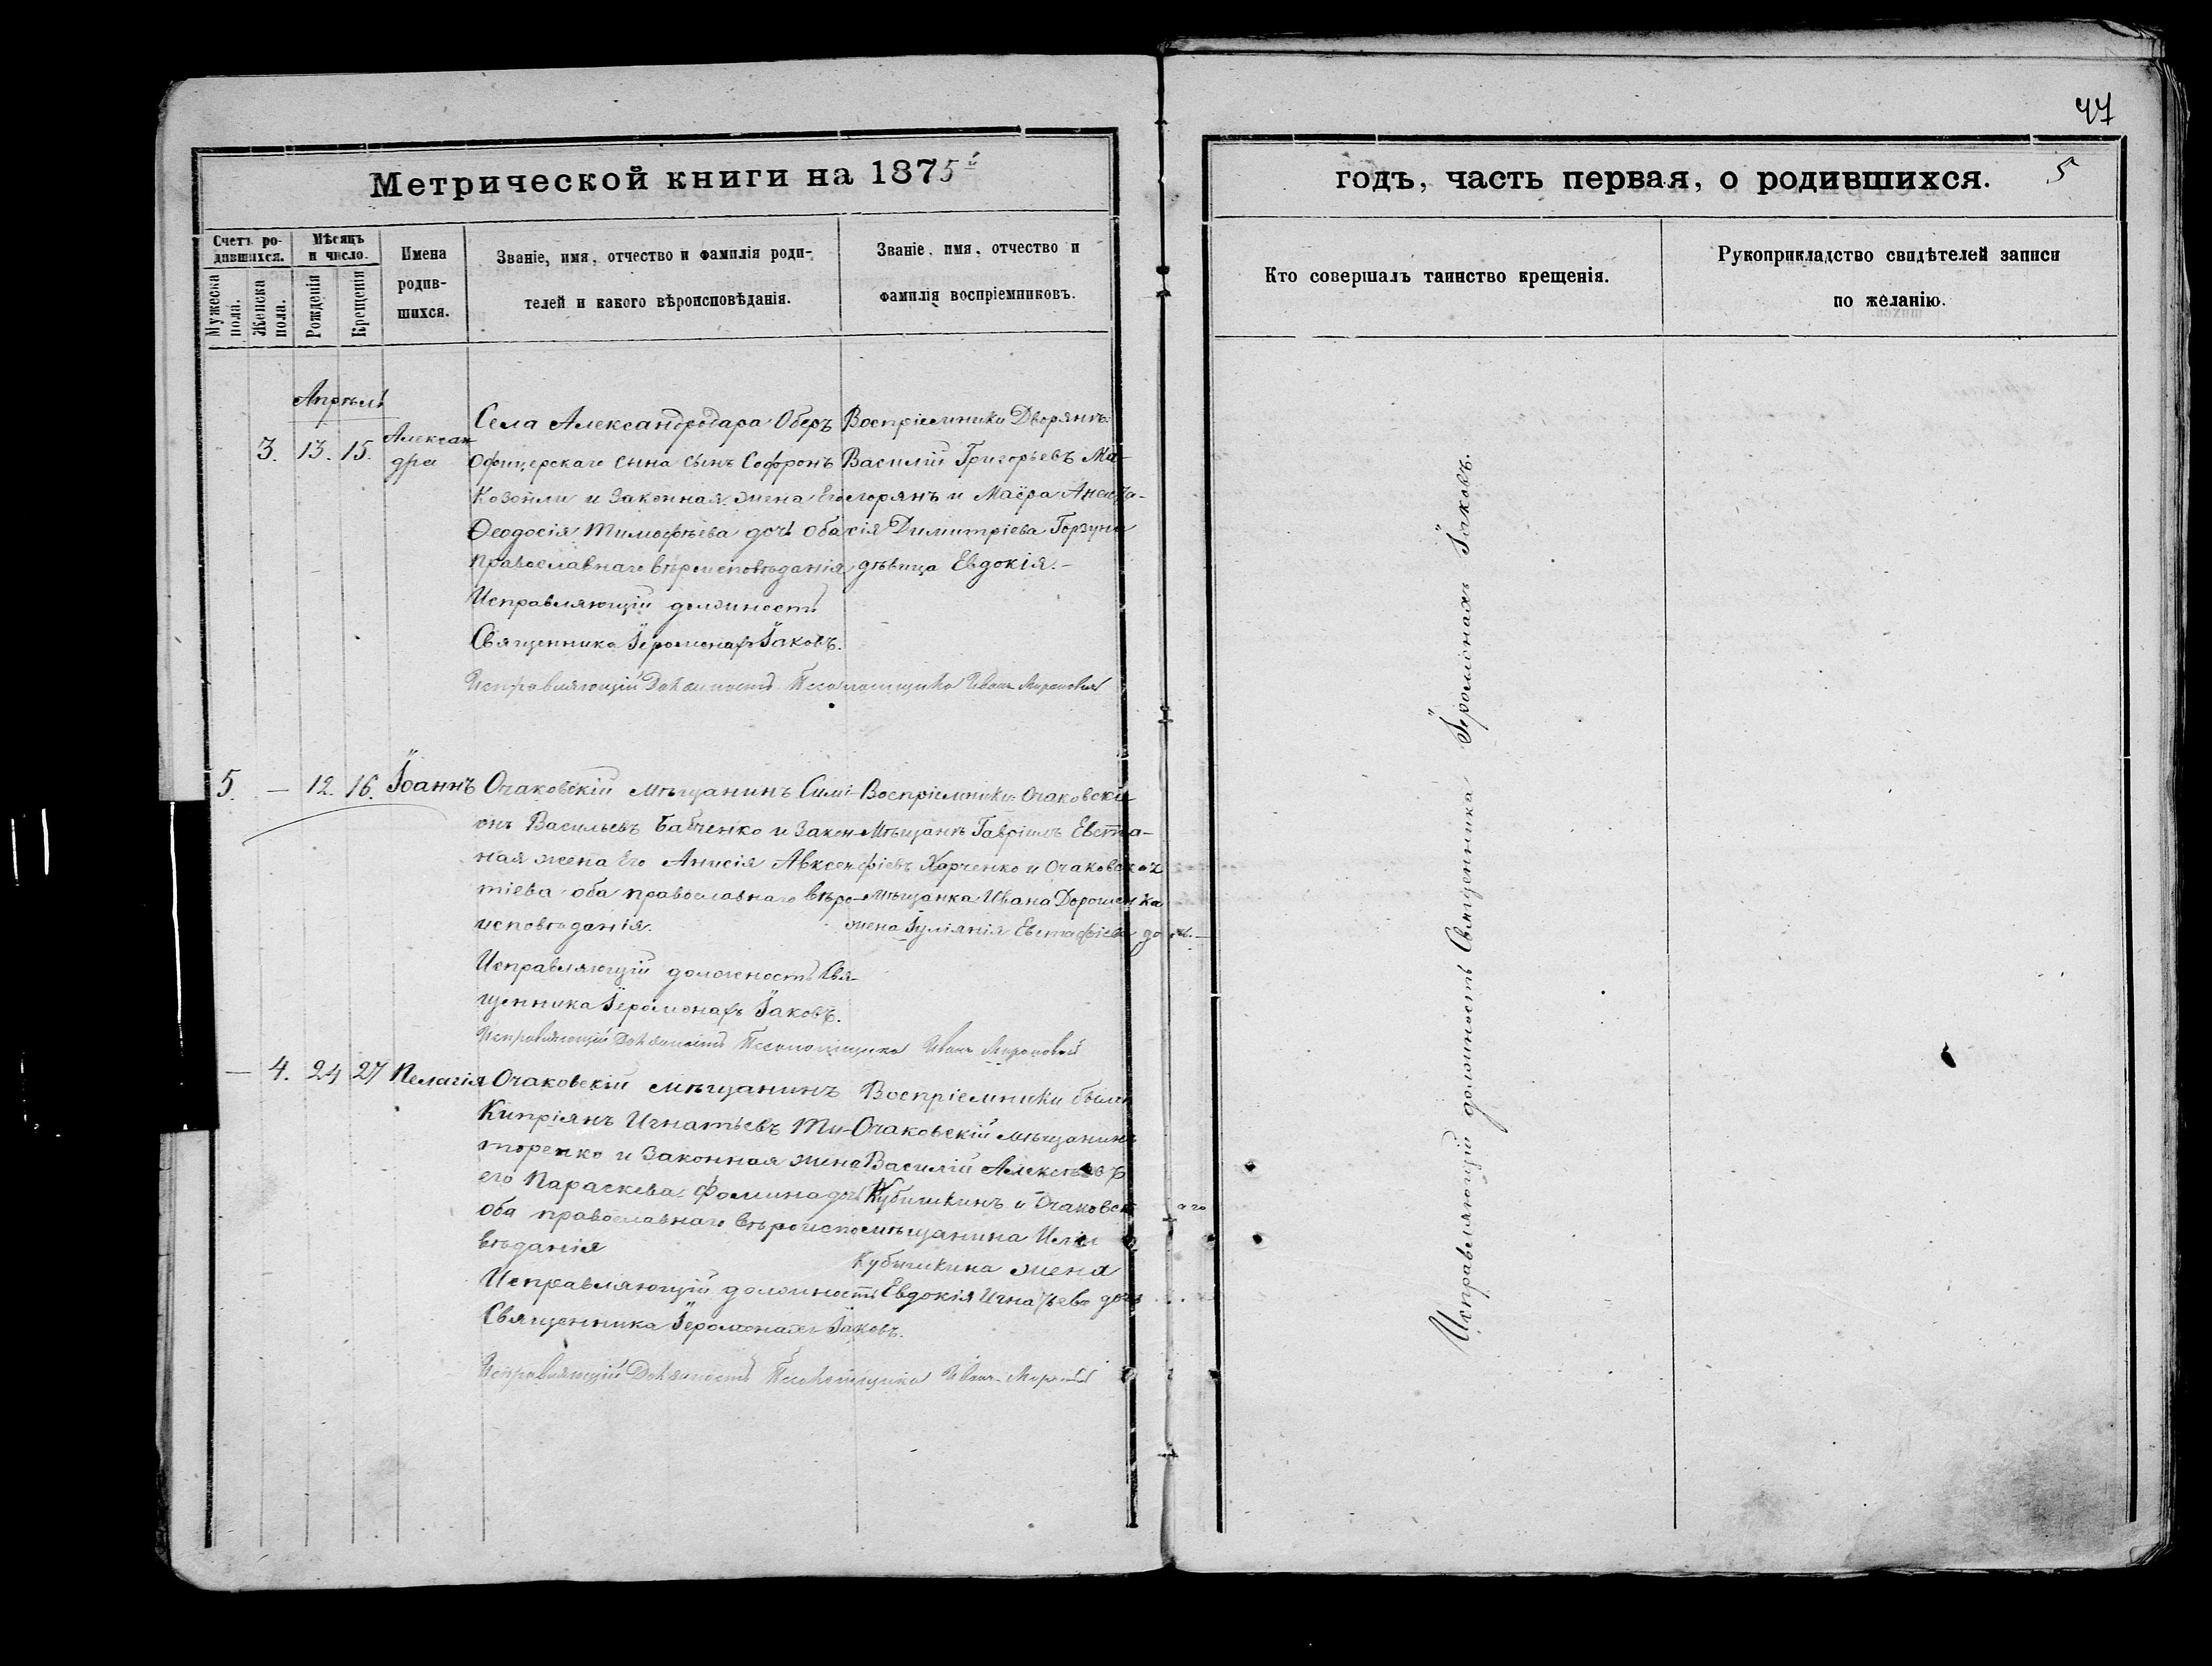 47
Метрической книги на 1875й
годъ, часть первая, о родившихся.
5
Счетъ ро-
дившихся.
Мѣсяцъ
и число.
Мужеска
пола.
Женска
пола.
Рожденія
Крещенія
Имена
родив-
шихся.
Званіе, имя, отчество и фамилія роди-
телей и какого вѣроисповѣданія.
Званіе, имя, отчество и
фамилія воспріемниковъ.
Кто совершалъ таинство крещенія.
Рукоприкладство свидѣтелей записи
по желанію.
Апрѣль
3. 13. 15.
Алексан
дра
Села Александродара Оберъ
Офицерскаго сына сынъ Софронъ
и Законная жена Его
Ѳеодосія Тимофѣева дочь оба
православнаго вѣроисповѣданія
Исправляющій должность
Священника Іеромонахъ Іаковъ.
Исправляющій Должность Псаломщика Иванъ
Воспріемники Дворянъ:
Василій Григорьевъ Ма-
горянъ и Маіора
сія Димитріева
дѣвица Евдокія.-
5. — 12. 16. Іоаннъ
Очаковскій мѣщанинъ Симі-
онъ Васильевъ Бабченко и Закон-
ная жена Его Анисія Авксен-
тіева оба православнаго вѣро-
исповѣданія.
Исправляющій должность Свя-
щенника Іеромонахъ Іаковъ.
Исправляющій Должность Псаломщика Иванъ
Воспріемники: Очаковскій
Мѣщанъ Гавріилъ Евста-
фіевъ Харченко и Очаковская
мѣщанка Ивана Дорошенка
жена Іуліянія Евстафіева дочь.—
— 4. 24 27 Пелагія
Очаковскій мѣщанинъ
Кипріянъ Игнатьевъ Ти-
торенко и Законная жена
его Параскева Фомина дочь
оба православнаго вѣроиспо-
вѣданія
Исправляющій должность
Священника Іеромонахъ Іаковъ.
Исправляющій Должность Псаломщика Иванъ
Воспріемники были
Очаковскій мѣщанинъ
Василій Алексѣевъ
Кубышкинъ и Очаковскаго
мѣщанина Иліи
Кубышкина жена
Евдокія Игнатьева дочь
Исправляющій должность Священника Іеромонахъ Іаковъ.